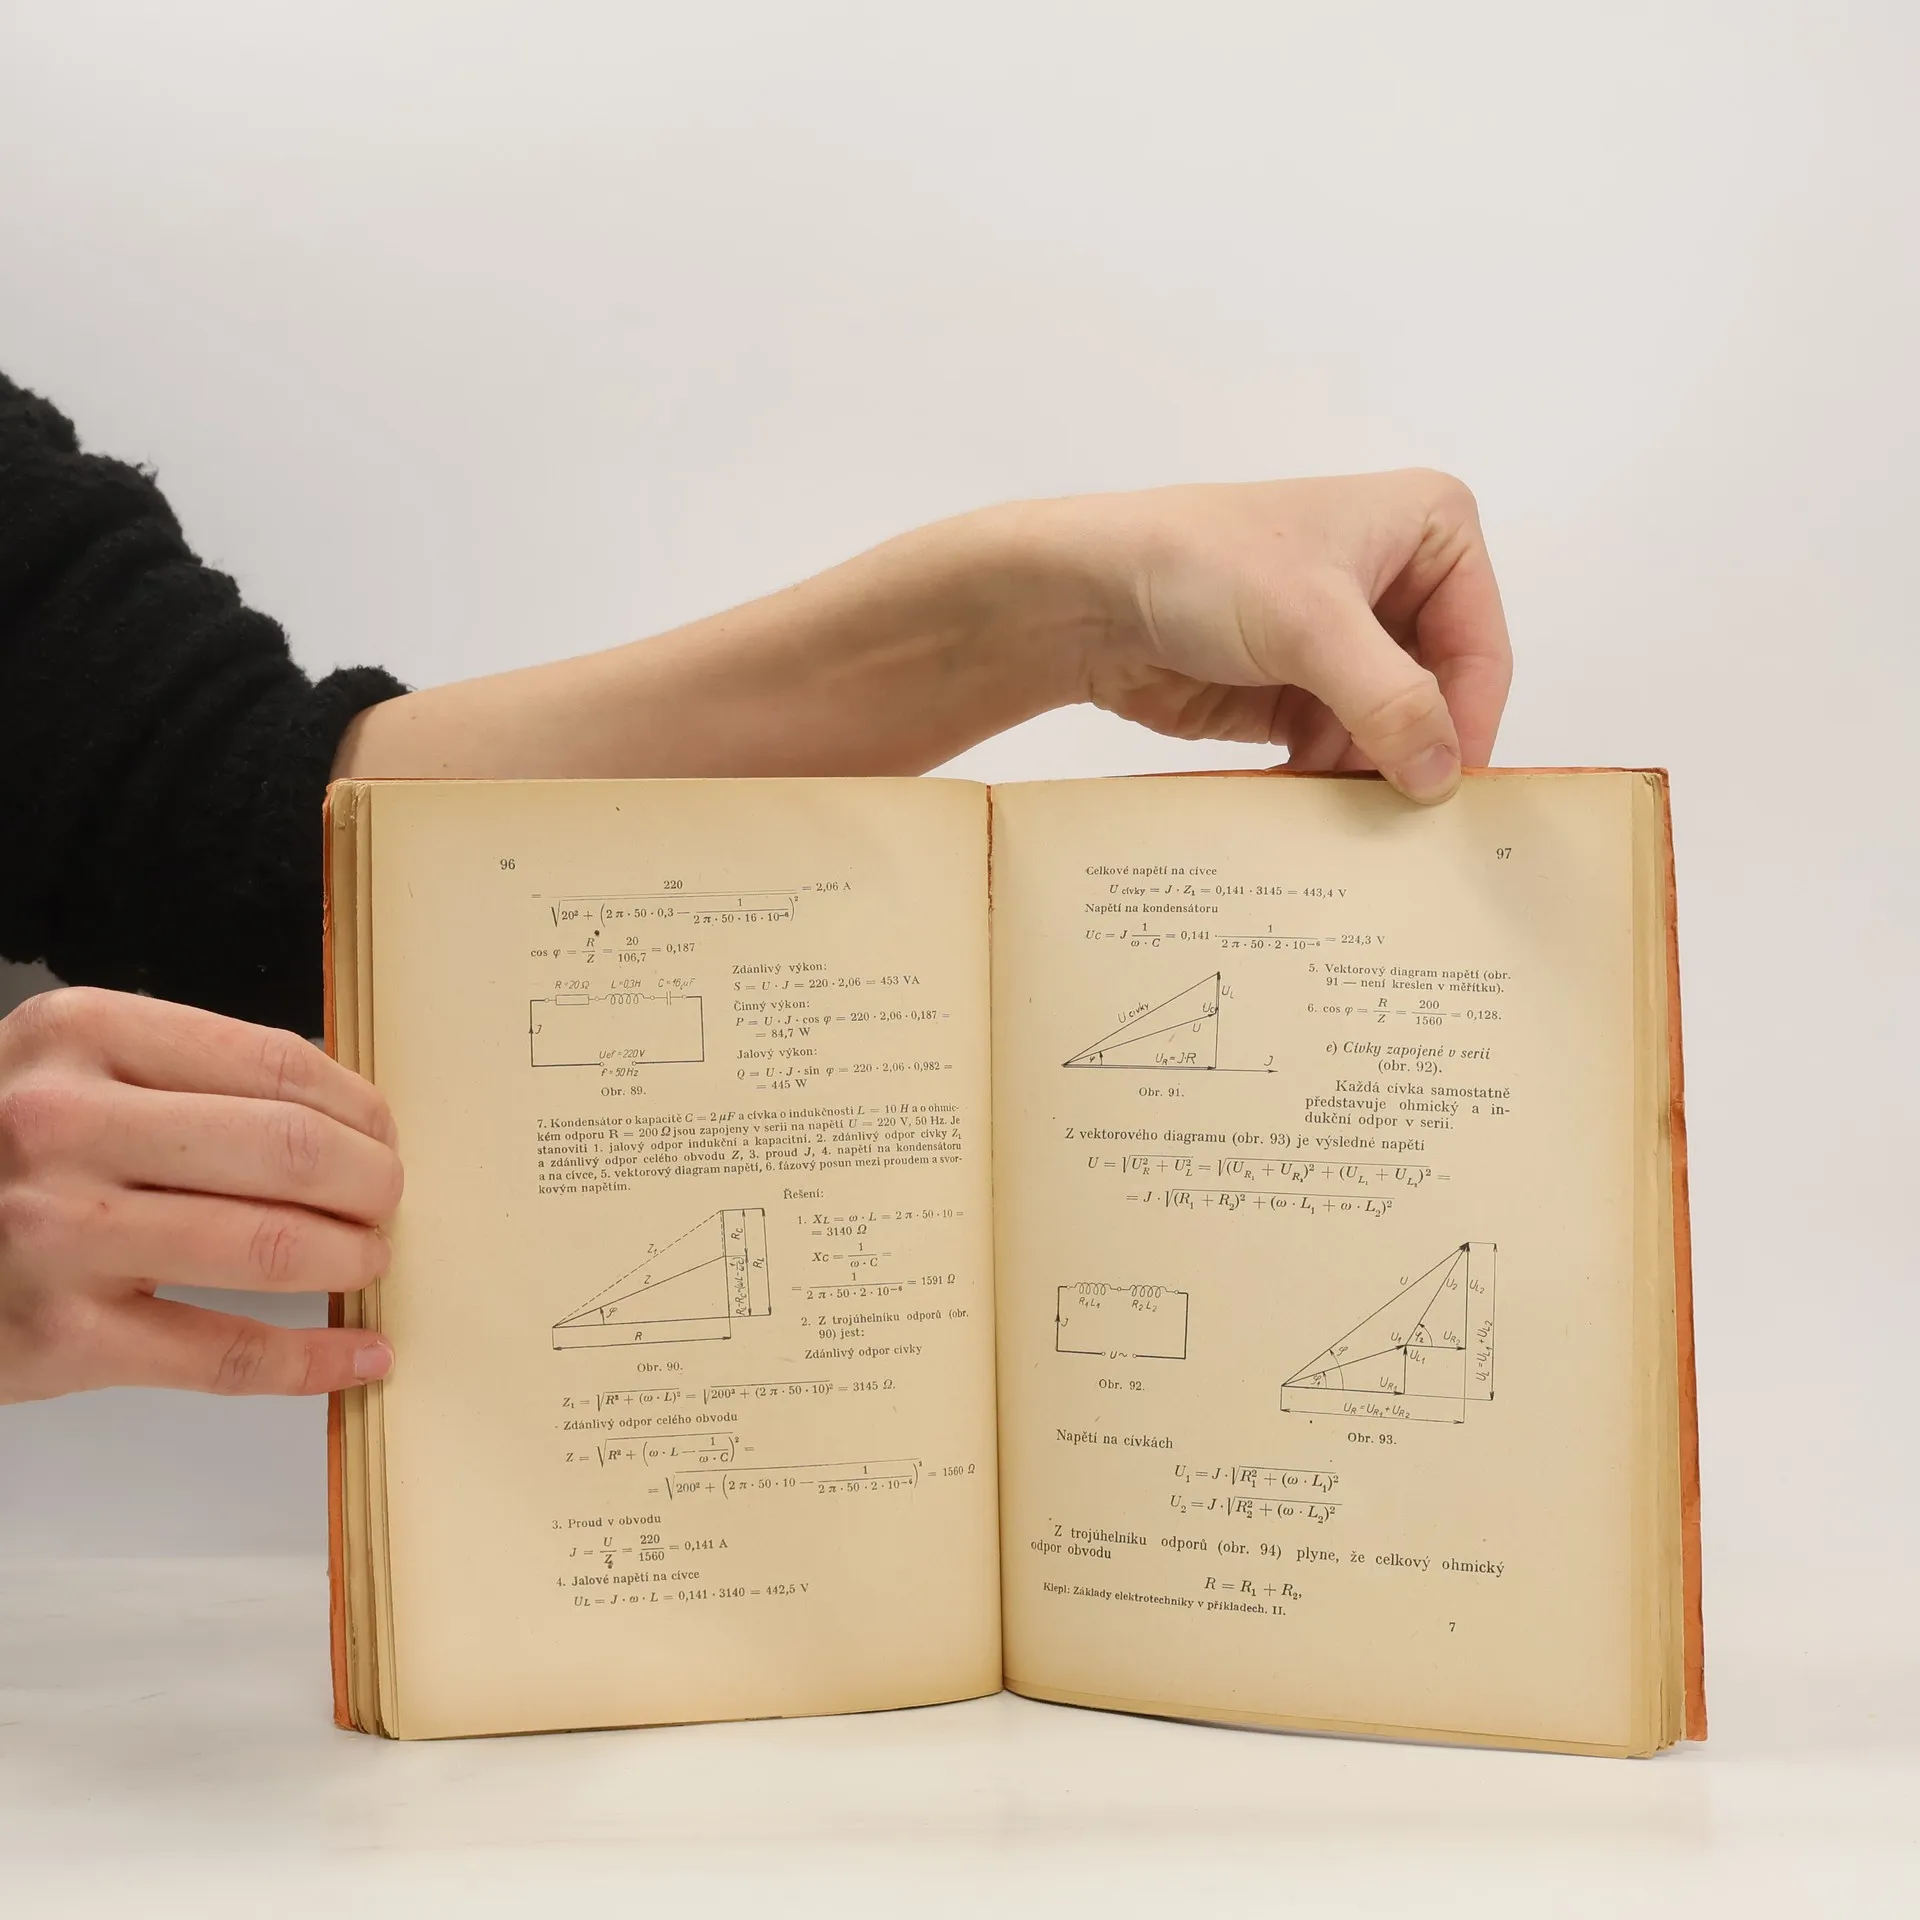 96
= 220 / √(20² + (2 π · 50 · 0,3 — 1 / (2 π · 50 · 16 · 10⁻⁶))²) = 2,06 A
cos φ = R / Z = 20 / 106,7 = 0,187
R=20Ω L=0,3H C=16μF
J
Uef=220V
f=50Hz
Obr. 89.
Zdánlivý výkon:
S = U · J = 220 · 2,06 = 453 VA
Činný výkon:
P = U · J · cos φ = 220 · 2,06 · 0,187 =
= 84,7 W
Jalový výkon:
Q = U · J · sin φ = 220 · 2,06 · 0,982 =
= 445 W
7. Kondensátor o kapacitě C = 2 μF a cívka o indukčnosti L = 10 H a o ohmic-
kém odporu R = 200 Ω jsou zapojeny v serii na napětí U = 220 V, 50 Hz. Je
stanoviti 1. jalový odpor indukční a kapacitní. 2. zdánlivý odpor cívky Z₁
a zdánlivý odpor celého obvodu Z, 3. proud J, 4. napětí na kondensátoru
a na cívce, 5. vektorový diagram napětí, 6. fázový posun mezi proudem a svor-
kovým napětím.
Řešení:
Z₁
Z
φ
R
R_C
R_L
Obr. 90.
1. X_L = ω · L = 2 π · 50 · 10 =
= 3140 Ω
X_C = 1 / (ω · C) =
= 1 / (2 π · 50 · 2 · 10⁻⁶) = 1591 Ω
2. Z trojúhelníku odporů (obr.
90) jest:
Zdánlivý odpor cívky
Z₁ = √(R² + (ω · L)²) = √(200² + (2 π · 50 · 10)²) = 3145 Ω.
Zdánlivý odpor celého obvodu
Z = √(R² + (ω · L — 1 / (ω · C))²) =
= √(200² + (2 π · 50 · 10 — 1 / (2 π · 50 · 2 · 10⁻⁶))²) = 1560 Ω
3. Proud v obvodu
J = U / Z = 220 / 1560 = 0,141 A
4. Jalové napětí na cívce
U_L = J · ω · L = 0,141 · 3140 = 442,5 V
97
Celkové napětí na cívce
U cívky = J · Z₁ = 0,141 · 3145 = 443,4 V
Napětí na kondensátoru
U_C = J 1 / (ω · C) = 0,141 · 1 / (2 π · 50 · 2 · 10⁻⁶) = 224,3 V
U cívky
U_L
U_C
U
φ
U_R=J·R
J
Obr. 91.
5. Vektorový diagram napětí (obr.
91 — není kreslen v měřítku).
6. cos φ = R / Z = 200 / 1560 = 0,128.
e) Cívky zapojené v serii
(obr. 92).
Každá cívka samostatně
představuje ohmický a in-
dukční odpor v serii.
Z vektorového diagramu (obr. 93) je výsledné napětí
U = √(U_R² + U_L²) = √((U_R₁ + U_R₂)² + (U_L₁ + U_L₂)²) =
= J · √((R₁ + R₂)² + (ω · L₁ + ω · L₂)²
R₁L₁ R₂L₂
J
U~
Obr. 92.
U
U₂
U_L2
U₁
φ₂
U_R2
U_L1
φ
φ₁
U_R1
U_L=U_L1+U_L2
U_R=U_R1+U_R2
Obr. 93.
Napětí na cívkách
U₁ = J · √(R₁² + (ω · L₁)²)
U₂ = J · √(R₂² + (ω · L₂)²)
Z trojúhelníku odporů (obr. 94) plyne, že celkový ohmický
odpor obvodu
R = R₁ + R₂,
Klepl: Základy elektrotechniky v příkladech. II.
7